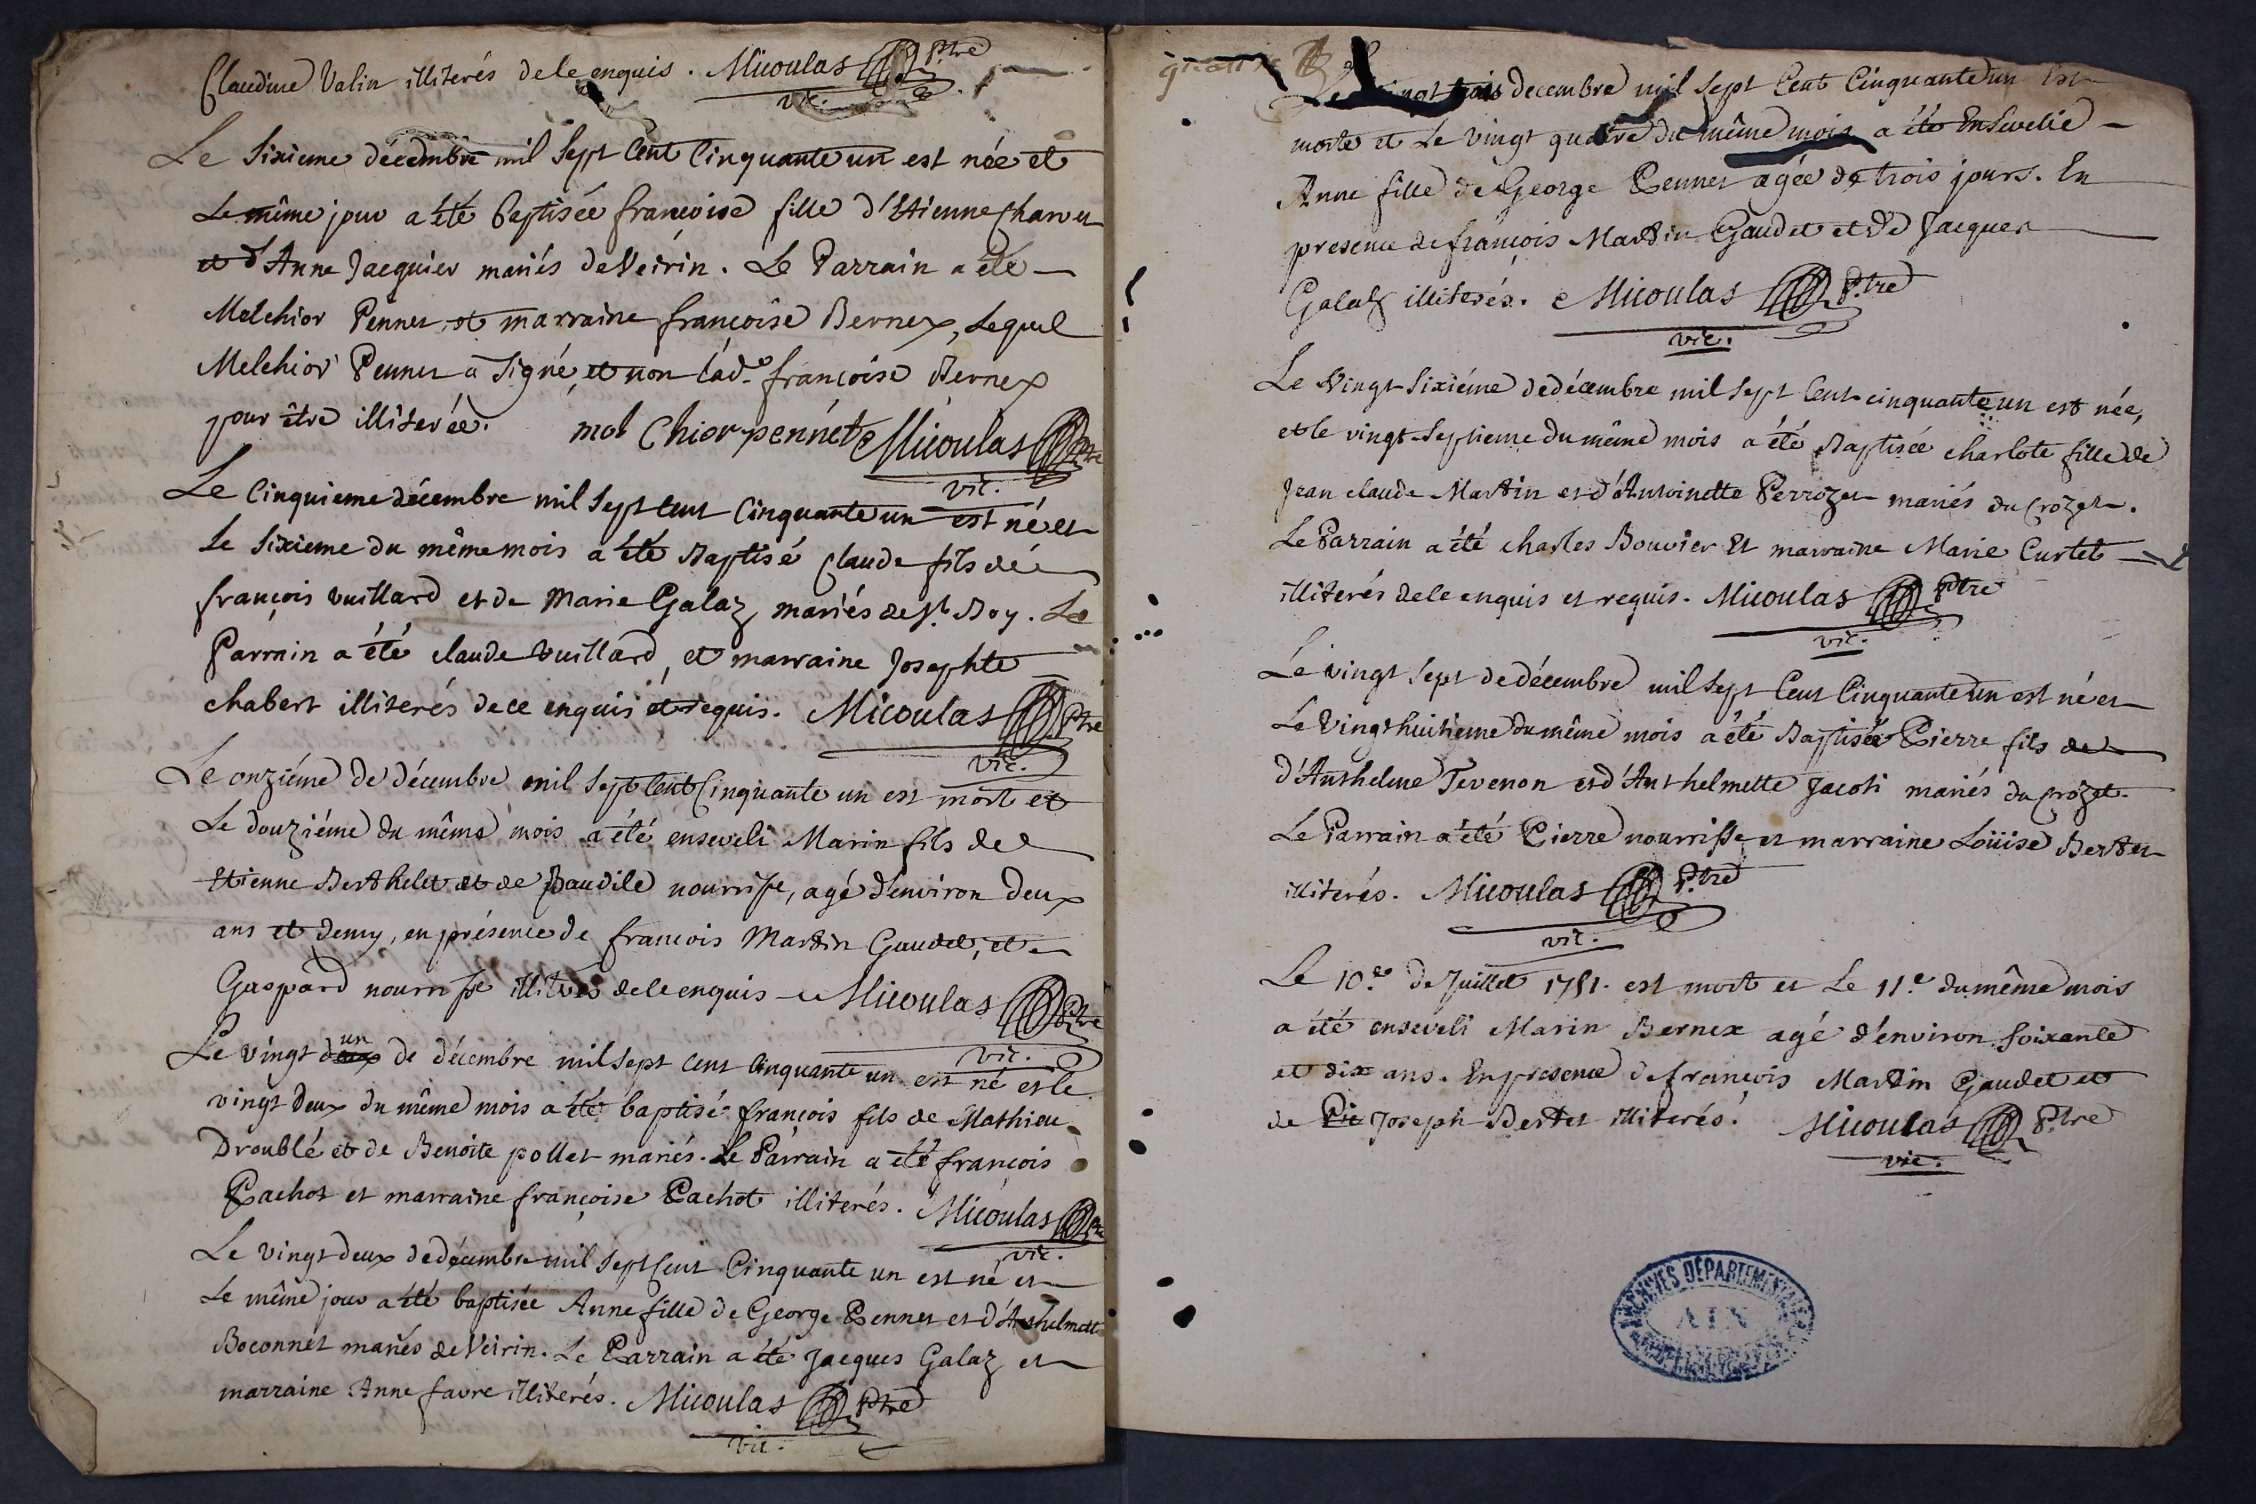 Claudine Valin illiterés de ce enquis. Micoulas Ptre
vic.
Le Sixieme décembre mil Sept Cent Cinquante un est née et
Le même jour a été baptisée françoise fille d'Etienne Charvet
et d'Anne Jacquier mariés de Veirin. Le Parrain a été
Melchior Pennet et marraine françoise Bernex, Lequel
Melchior Pennet a Signé, et non lad.e françoise Bernex
pour être illiterée. mel Chior pennét Micoulas Ptre
vic.
Le Cinquieme décembre mil Sept Cent Cinquante un est né et
Le Sixieme du même mois a été Baptisé Claude fils de
françois vuillard et de Marie Galaz mariés de St. Boy. Le
Parrain a été claude vuillard, et marraine Josephte
chabert illiterés de ce enquis et requis. Micoulas Ptre
vic.
Le onziéme de décembre mil Sept Cent Cinquante un est mort et
Le douziéme du même mois a été enseveli Marin fils de
Etienne Berthelet et de Baudile nourrisse, agé d'environ deux
ans et demy, en présence de francois Martin Gaudet, et
Gaspard nourrisse illiterés de ce enquis Micoulas Ptre
vic.
Le vingt deux un de décembre mil Sept Cent Cinquante un est né et le
vingt deux du même mois a été baptisé françois fils de Mathieu
Droublé et de Benoite pollet mariés. Le Parrain a été françois
Pachot et marraine françoise Pachot illiterés. Micoulas Ptre
vic.
Le vingt deux de décembre mil Sept Cent Cinquante un est né et
Le même jour a été baptisée Anne fille de George Pennet et d'Anthelmette
Boconnet mariés de Veirin. Le Parrain a été Jacques Galaz et
marraine Anne favre illiterés. Micoulas Ptre
vic.
quatre
Le vingt trois decembre mil Sept Cent Cinquante un Est
morte et Le vingt quatre du même mois a été Ensevelie
Anne fille de George Pennet agée de trois jours. En
presence de françois Martin Gaudet et de Jacques
Galaz illiterés. Micoulas Ptre
vic.
Le Vingt-Sixiéme de décembre mil Sept Cent cinquante un est née,
et le vingt-Septieme du même mois a été Baptisée charlote fille de
Jean claude Martin et d'Antoinette Perrozet mariés du Crozet.
Le Parrain a été charles Bouvier Et marraine Marie Curtet
illiterés de ce enquis et requis. Micoulas Ptre
vic.
Le vingt Sept de décembre mil Sept Cent Cinquante un est né et
Le Vingt huitieme du même mois a été Baptisée Pierre fils de
d'Anthelme Tevenon et d'Anthelmette Jacoti mariés du Crozet.
Le Parrain a été Pierre nourrisse et marraine Loüise Bertet
illiterés. Micoulas Ptre
vic.
Le 10.e de Juillet 1751. est mort et Le 11.e du même mois
a été enseveli Marin Bernex agé d'environ soixante
et dix ans. En presence de françois Martin Gaudet et
de Pie Joseph Bertet illiterés. Micoulas Ptre
vic.
ARCHIVES DÉPARTEMENTALES
AIN